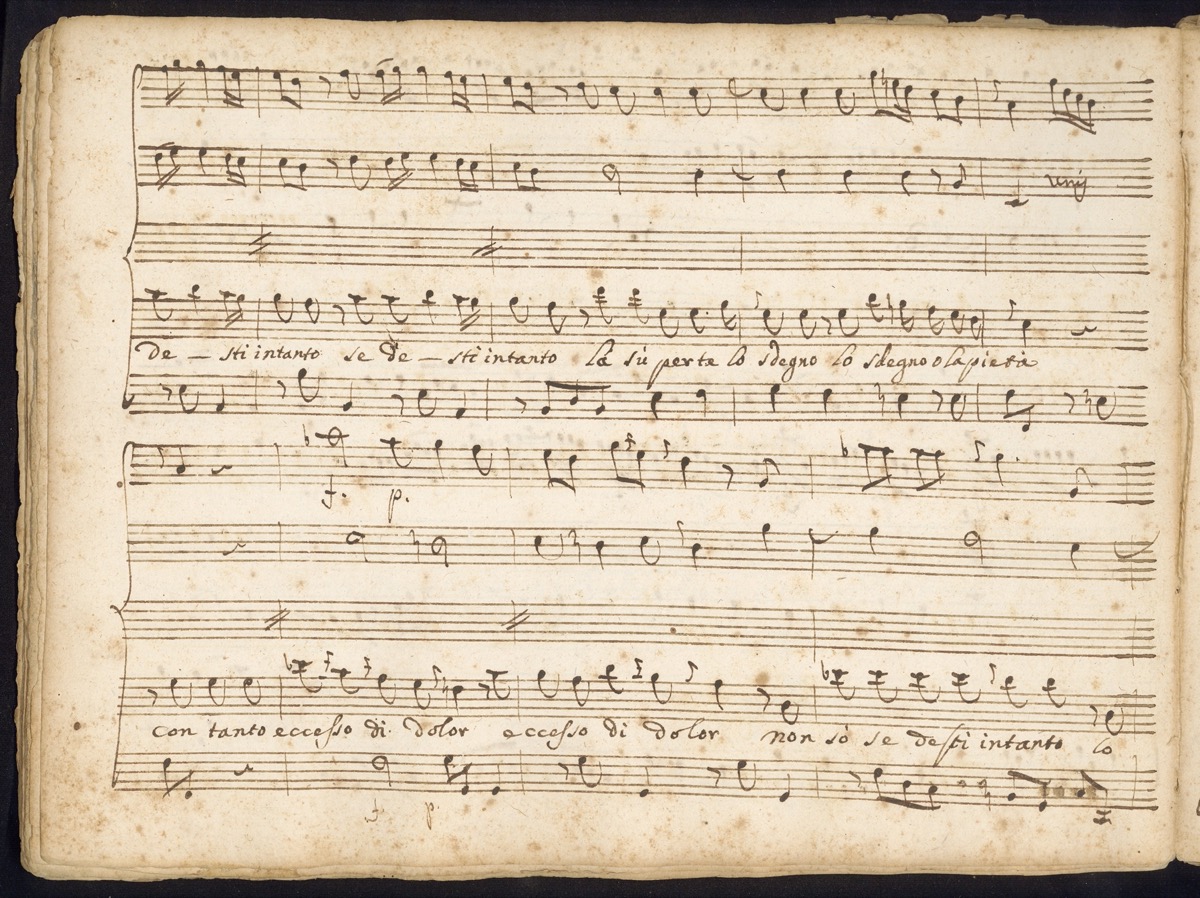 unis
de – sti intanto se de – sti intanto là sù per te lo sdegno lo sdegno o la pietà
f. p.
con tanto eccesso di dolor eccesso di dolor non sò se desti intanto lo
f p